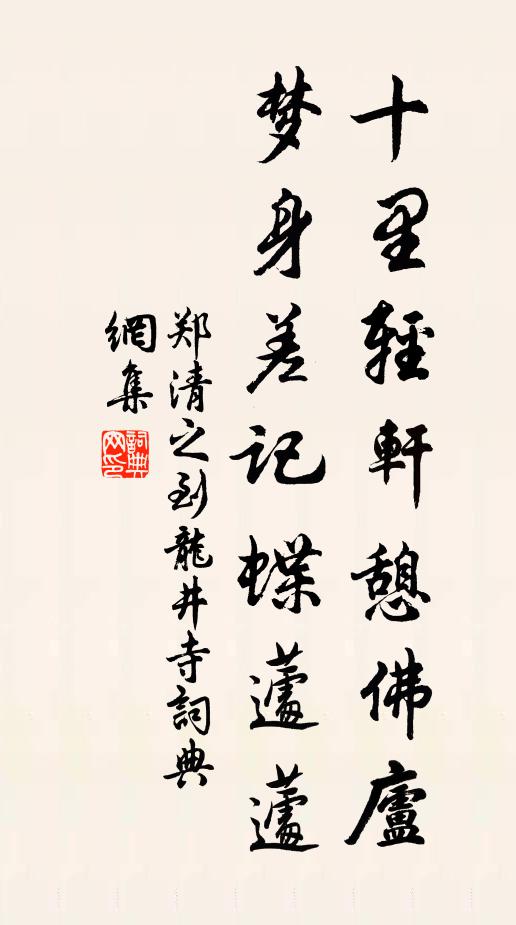 十里輕軒憩佛廬
梦身差记蝶蘧蘧
郑清之到龍井寺詞典
網集
詞典网印